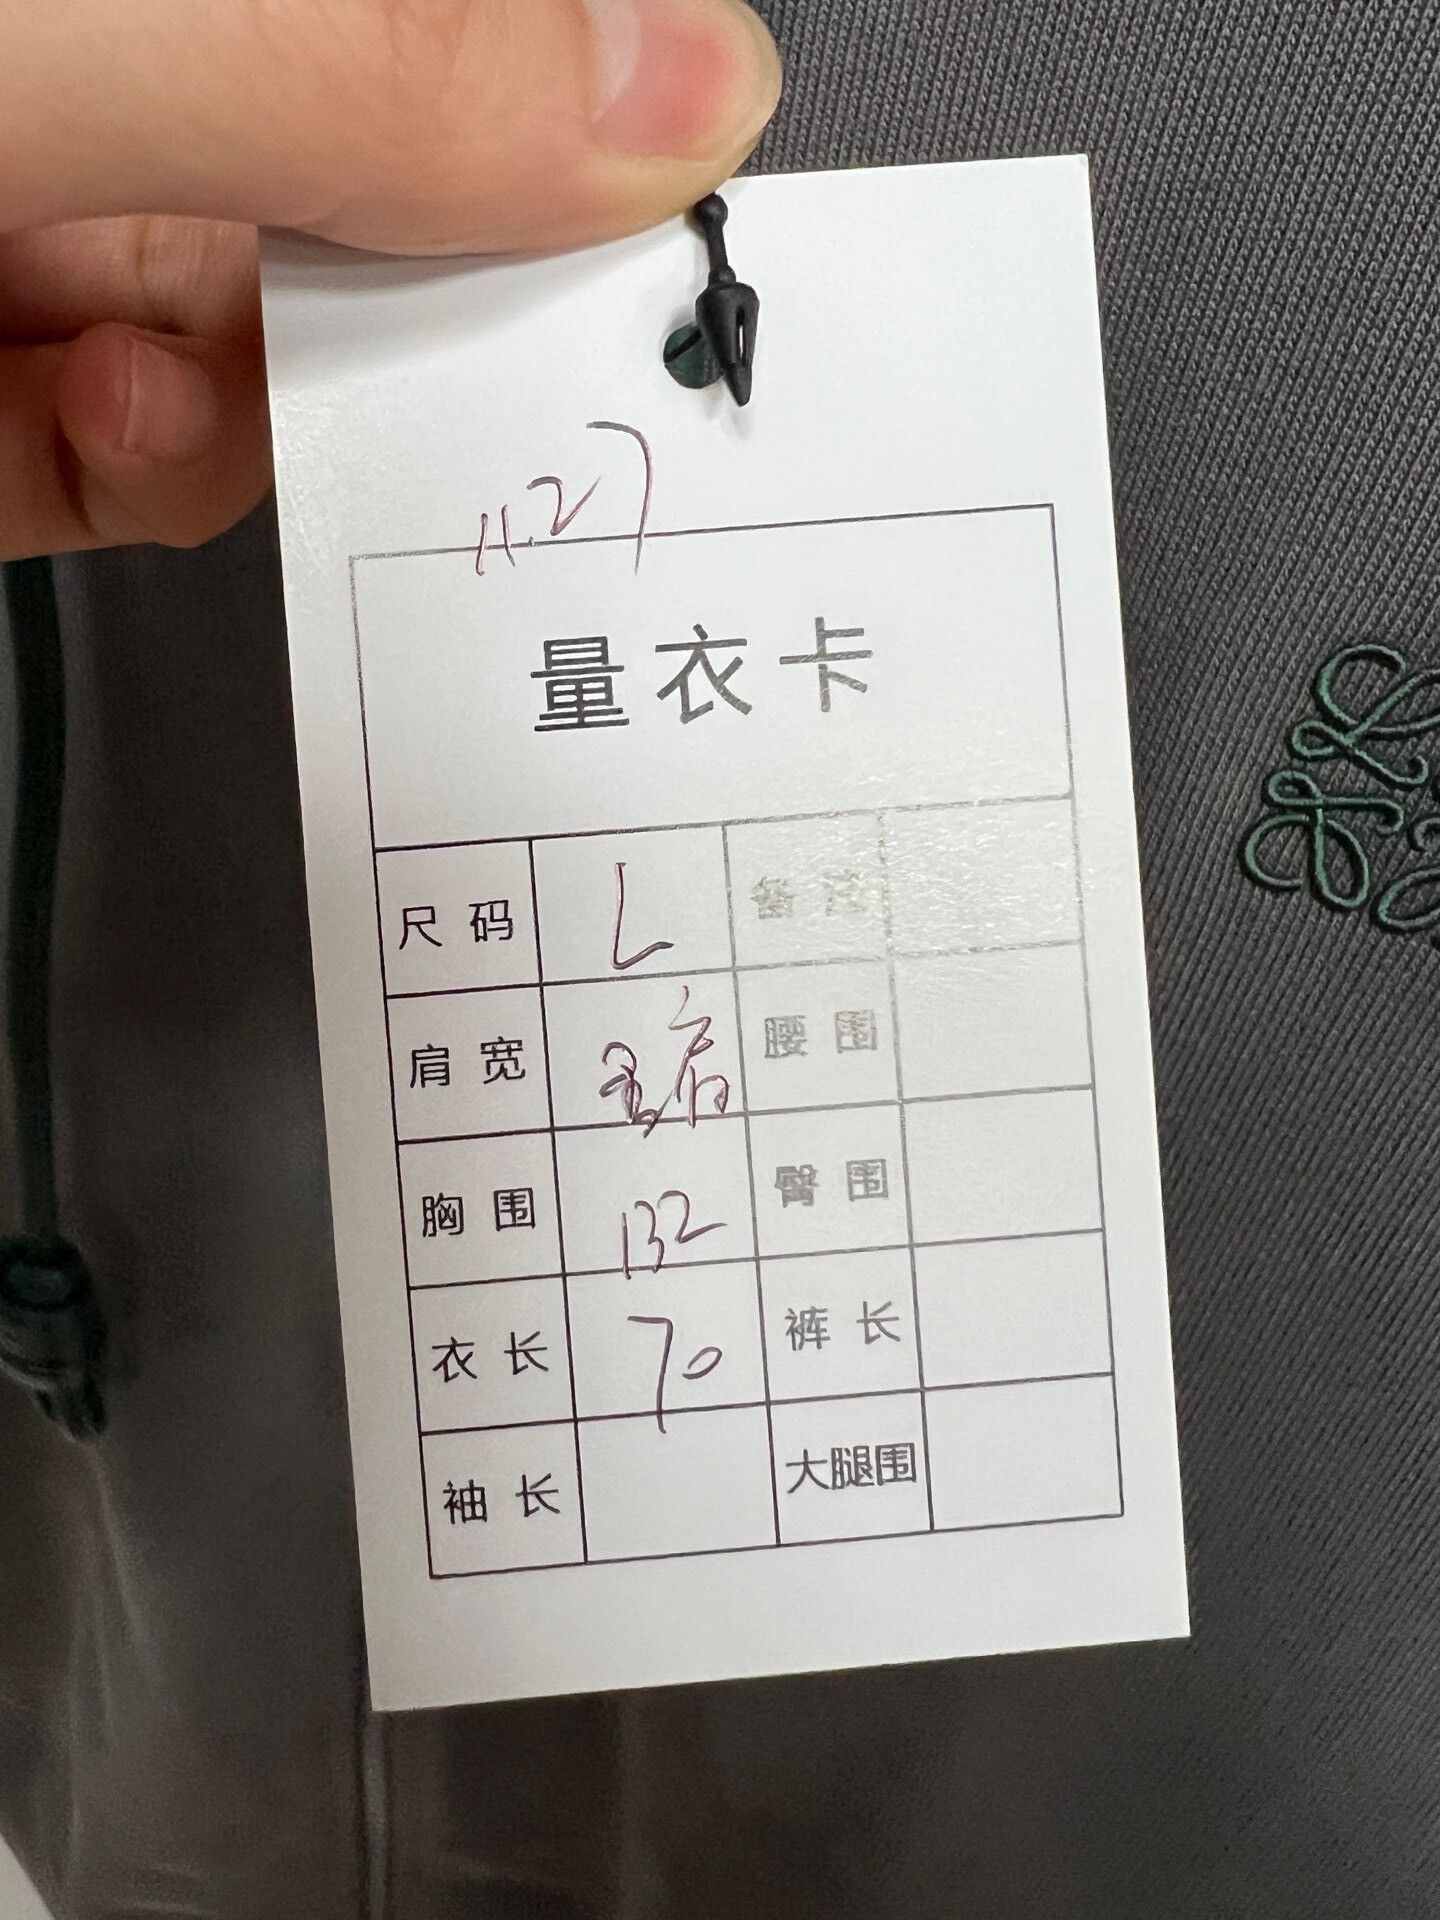 11.27
量衣卡
尺码 L 备注
肩宽 肩 腰围
胸围 132 臀围
衣长 70 裤长
袖长 大腿围